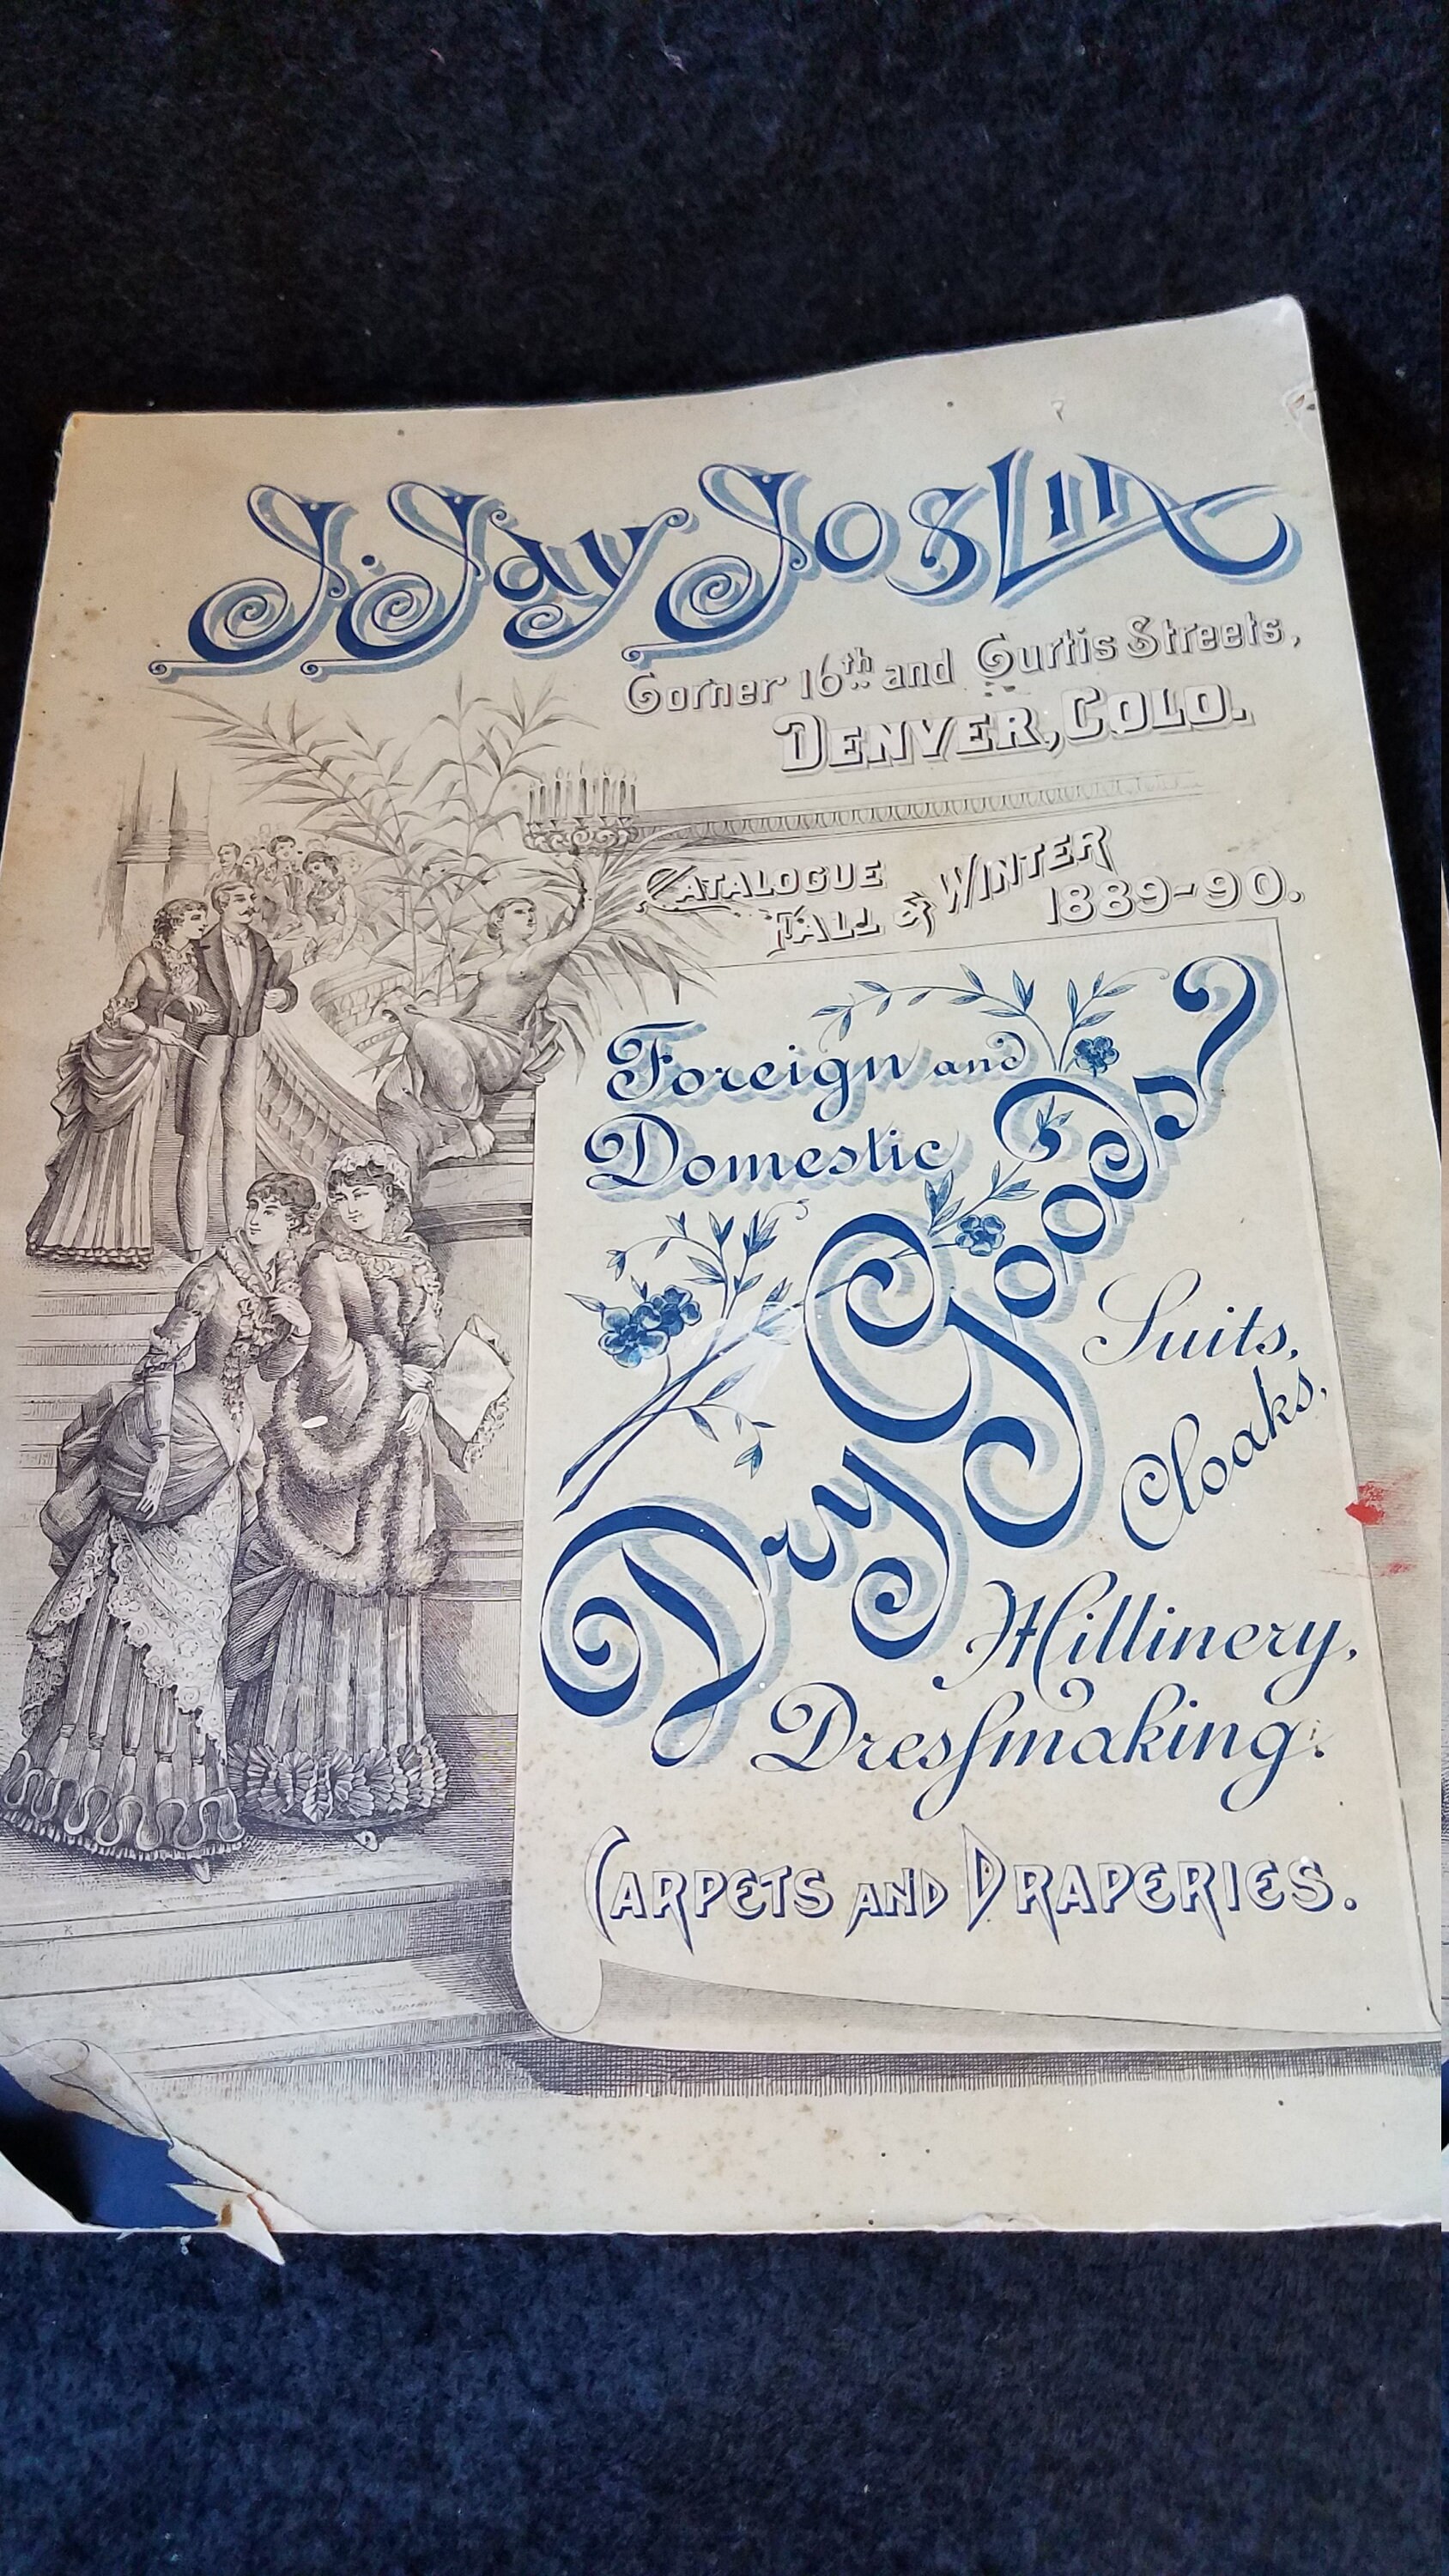 J. Jay Joslin
Corner 16th and Curtis Streets,
DENVER, COLO.
CATALOGUE
FALL & WINTER
1889-90.
Foreign and
Domestic
Dry Goods
Suits,
Cloaks,
Millinery,
Dreſsmaking.
CARPETS AND DRAPERIES.